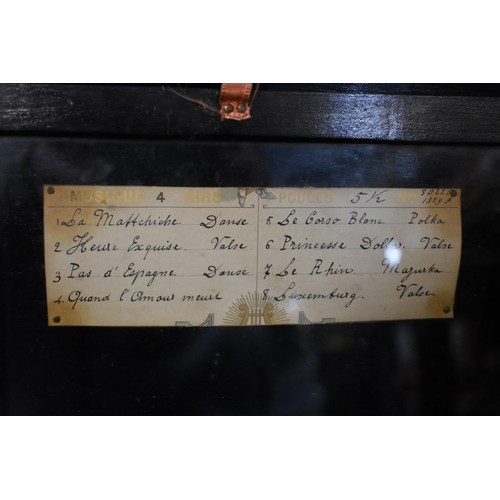 MUSIQUE 4 AIRS POUCES 5 ½
1 La Mattchiche Danse
2 Heure Exquise. Valse
3 Pas d'Espagne. Danse
4. Quand l'Amour meurt
5. Le Corso Blanc Polka
6 Princesse Dollar. Valse
7 Le Rhin Mazurka
8. Luxemburg. Valse.